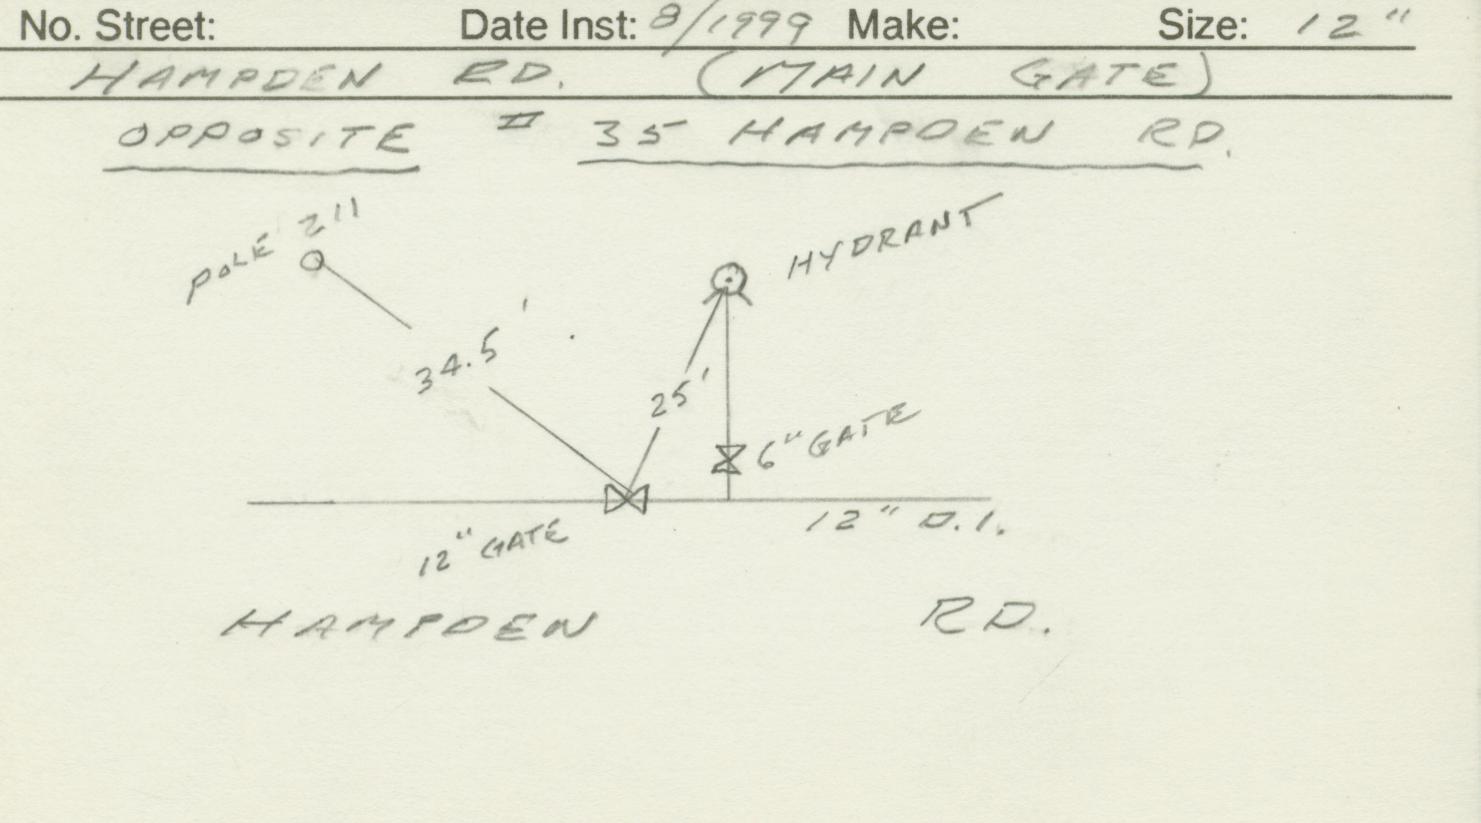 No. Street: Date Inst: 8/1999 Make: Size: 12"
HAMPDEN RD. (MAIN GATE)
OPPOSITE # 35 HAMPDEN RD.
POLE 211
HYDRANT
34.5'
25'
6" GATE
12" GATE
12" D.I.
HAMPDEN RD.